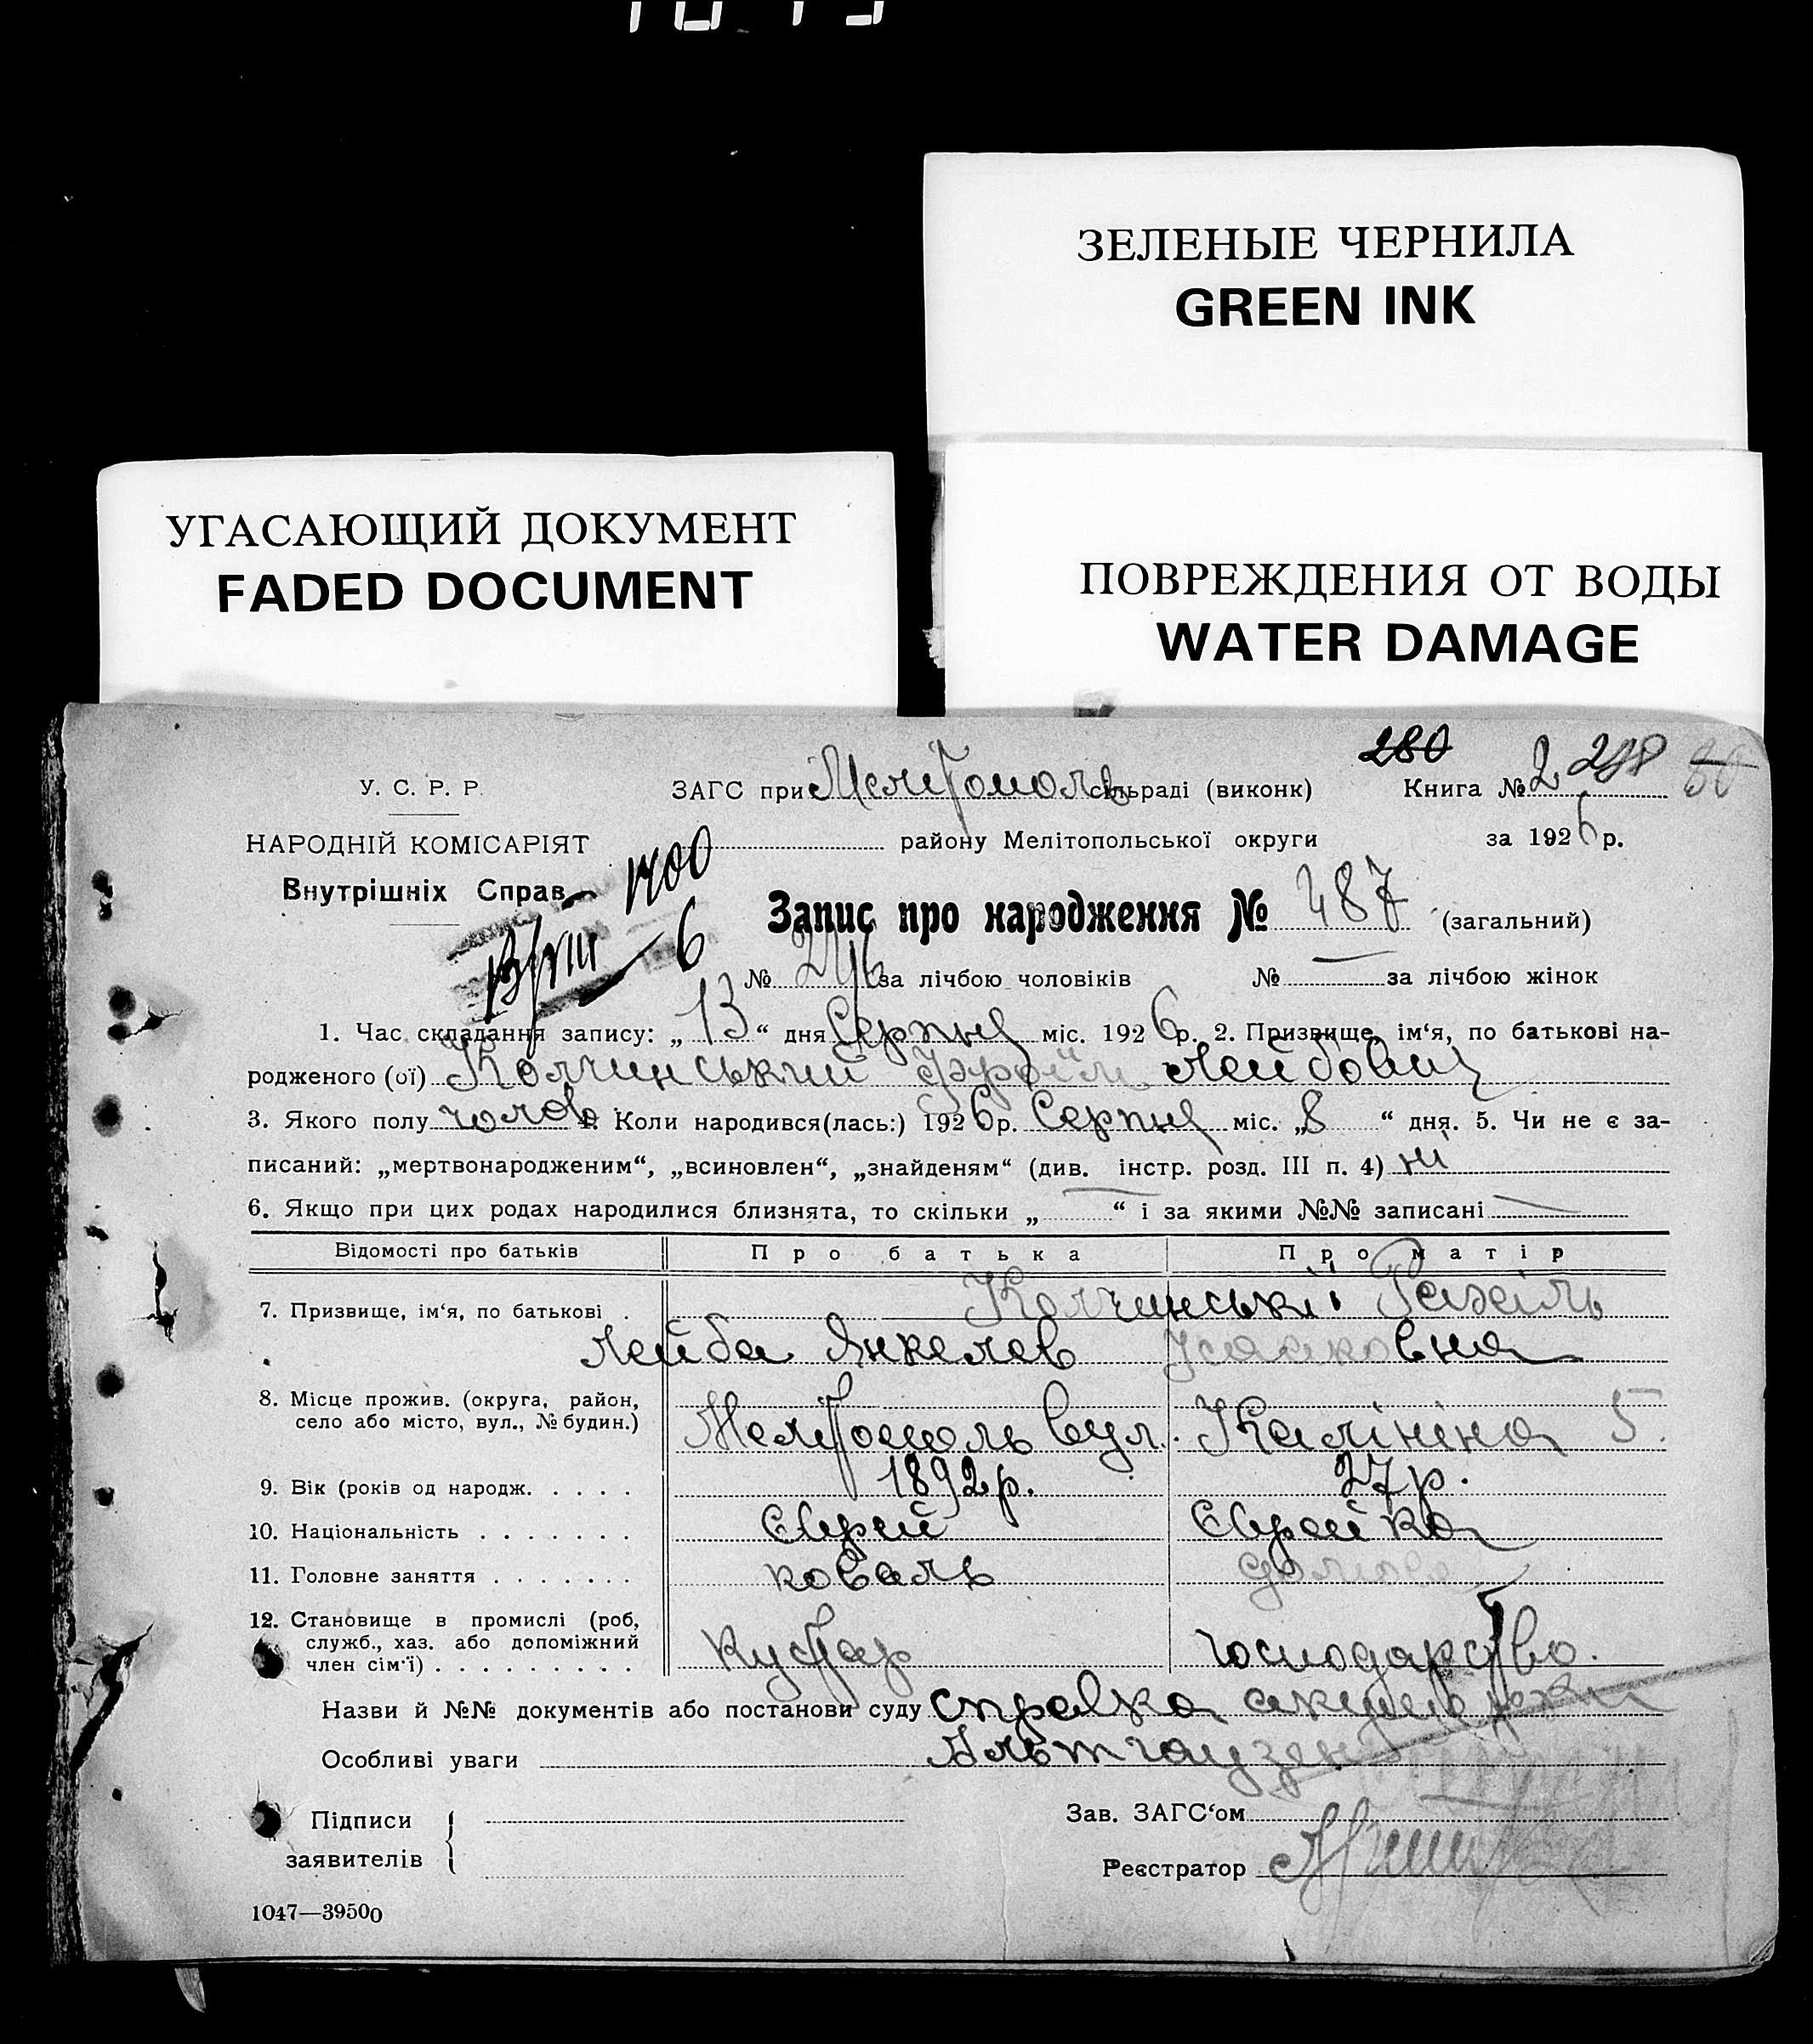 ЗЕЛЕНЫЕ ЧЕРНИЛА
GREEN INK
УГАСАЮЩИЙ ДОКУМЕНТ
FADED DOCUMENT
ПОВРЕЖДЕНИЯ ОТ ВОДЫ
WATER DAMAGE
280
У. С. Р. Р.
ЗАГС при Мелитополь сільраді (виконк) Книга № 2
НАРОДНІЙ КОМІСАРІЯТ
району Мелітопольської округи за 1926 р.
Внутрішніх Справ
1700
Запис про народження № 487 (загальний)
6
№ за лічбою чоловіків № — за лічбою жінок
1. Час складання запису: „13“ дня Серпня міс. 1926 р. 2. Призвище, ім‘я, по батькові на-
родженого (ої) Колчинський Эфроїм Лейбович
3. Якого полу чолов. 4. Коли народився(лась:) 1926 р. Серпня міс. „8“ дня. 5. Чи не є за-
писаний: „мертвонародженим“, „всиновлен“, „знайденям“ (див. інстр. розд. III п. 4) ні
6. Якщо при цих родах народилися близнята, то скільки „—“ і за якими №№ записані —
Відомості про батьків Про батька Про матір
7. Призвище, ім‘я, по батькові . Колчинські Рахіль
Лейба Янкелев Исааковна
8. Місце прожив. (округа, район,
село або місто, вул., № будин.) Мелітополь вул. Калініна 5.
9. Вік (років од народж. . . . . 1892 р. 27 р.
10. Національність . . . . . . . Єврей Єврейка
11. Головне заняття . . . . . . . коваль домове
12. Становище в промислі (роб,
служб., хаз. або допоміжний
член сім‘ї) . . . . . . . . . Кустар господарство.
Назви й №№ документів або постанови суду справка акушерки
Особливі уваги Альтгаузен
Підписи
заявителів
Зав. ЗАГС‘ом
Реєстратор
1047—39500